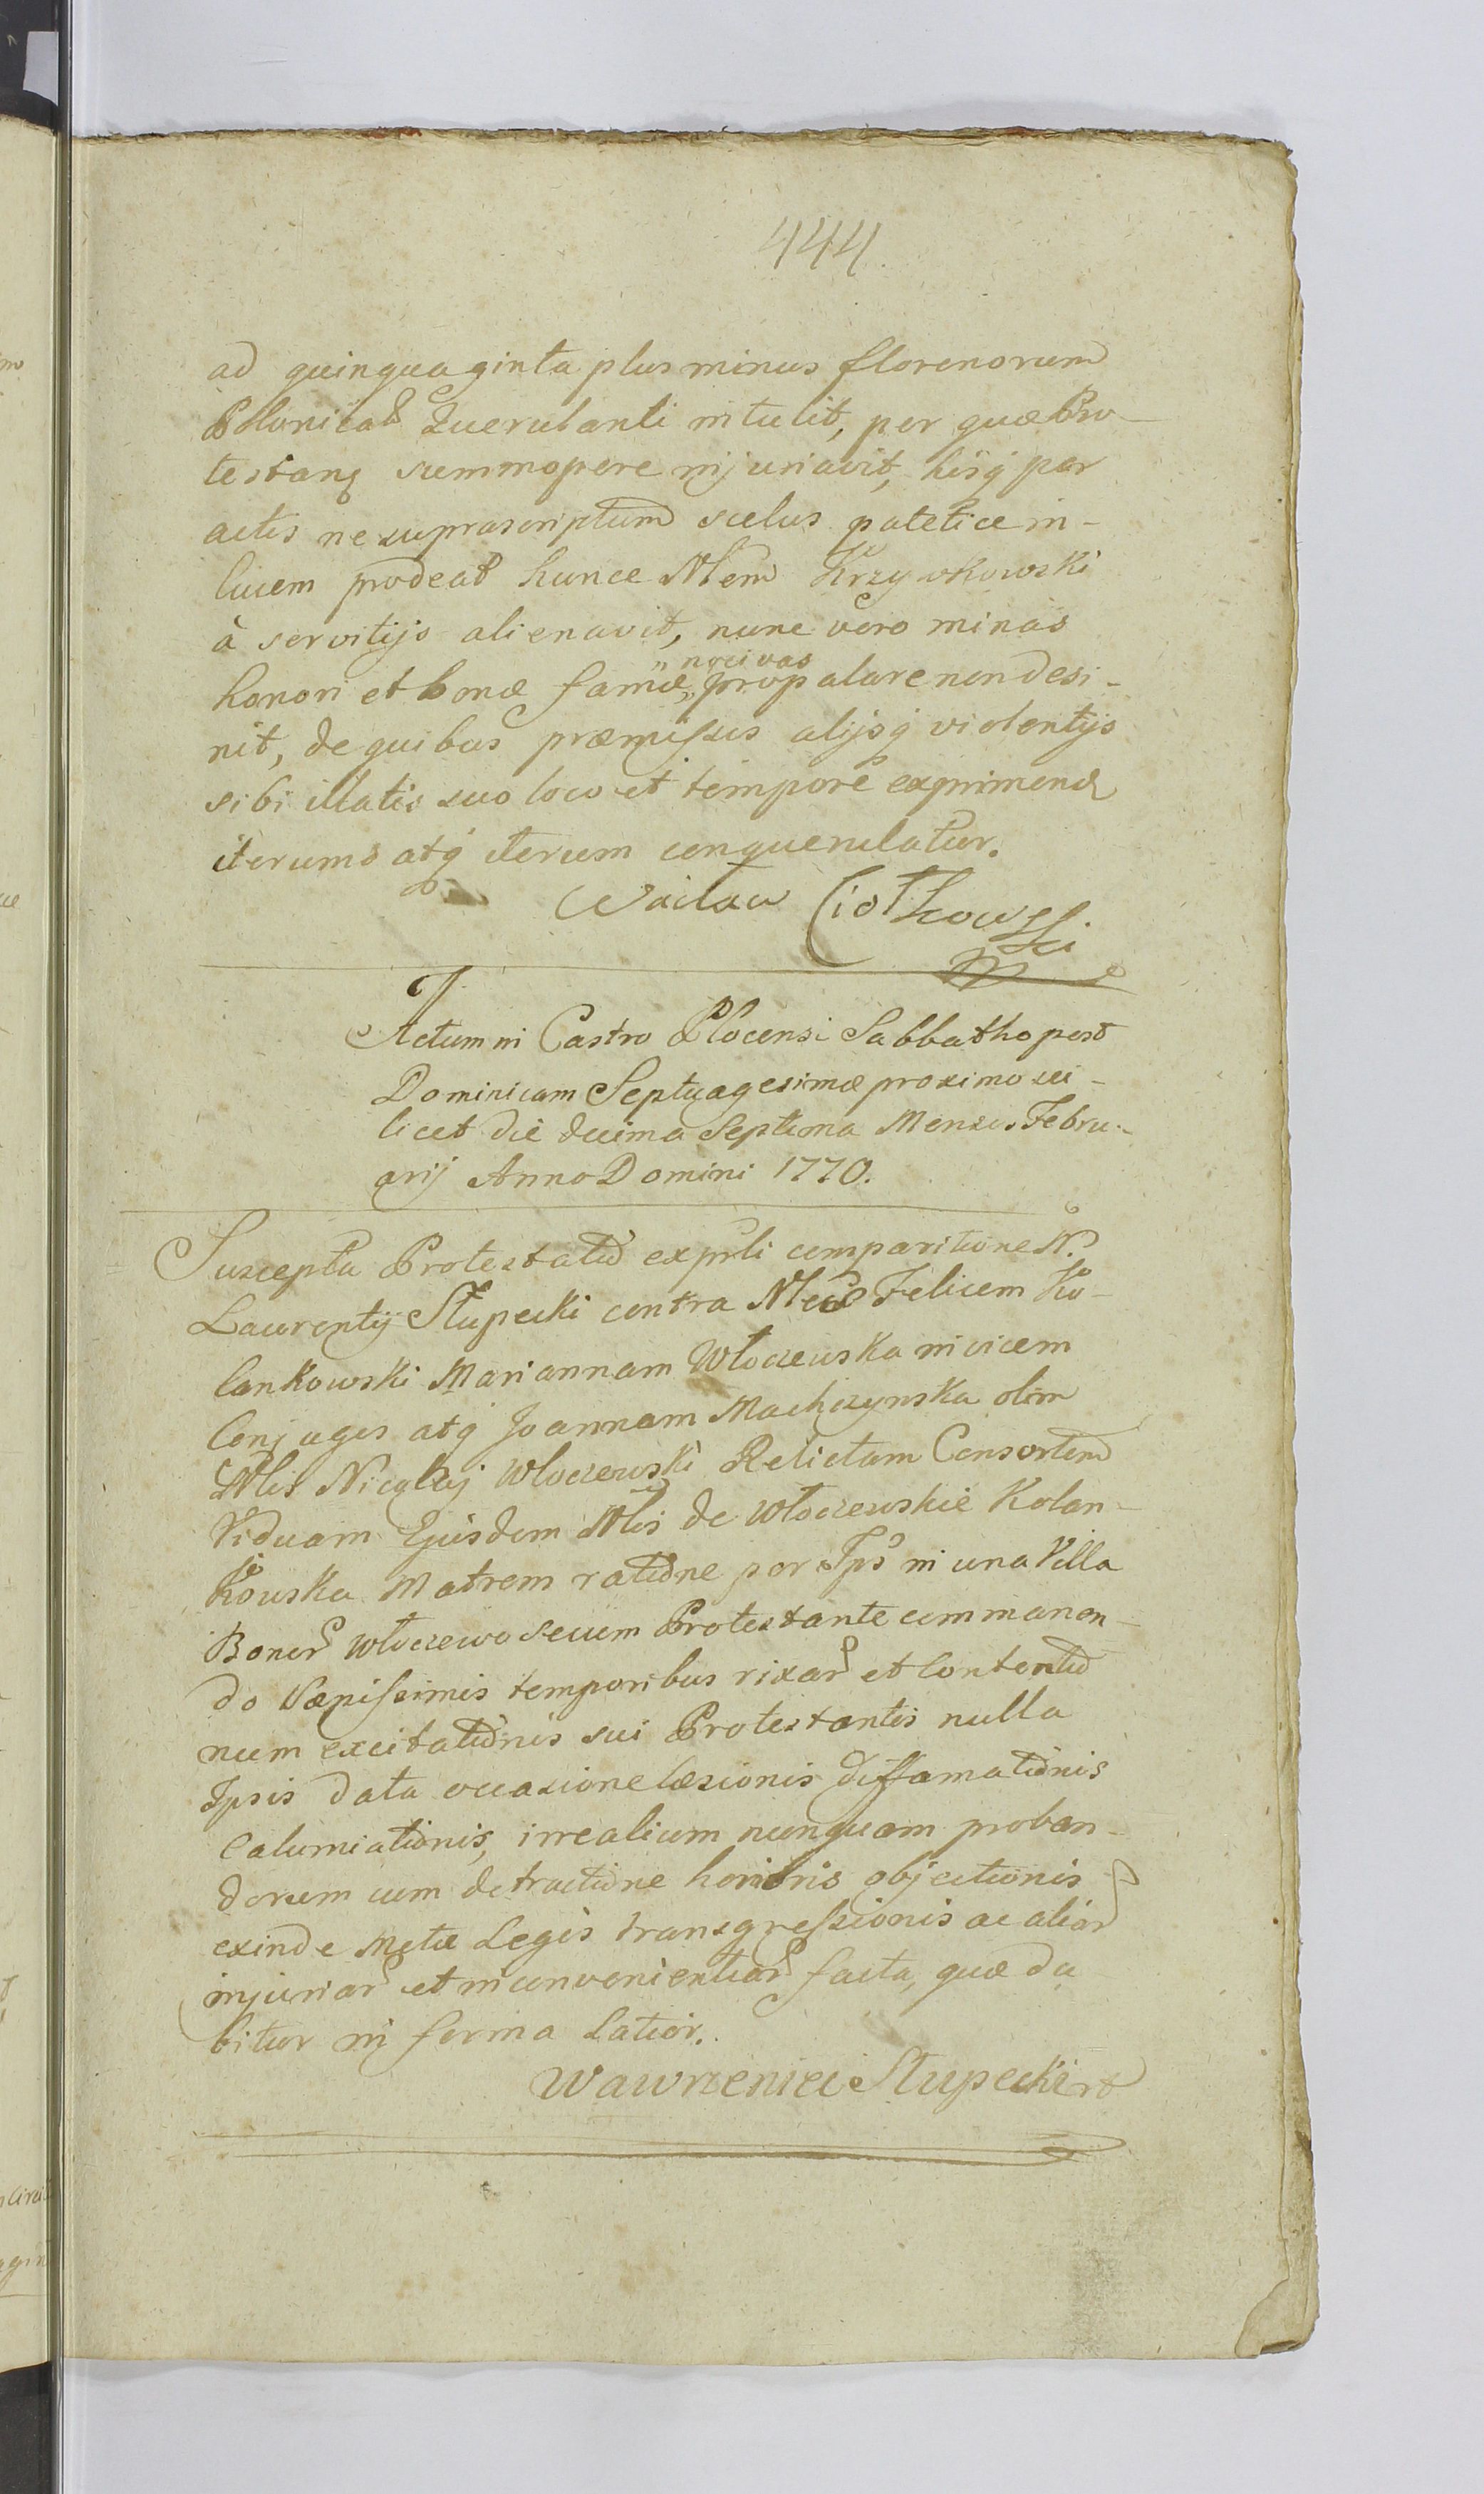 444.
ad quinquaginta plus minus florenorum
Polonical Querulanti intulit, per quæ Pro-
testanq summopere injuriavit, hisq per
actis ne suprascriptum scelus patetice in-
lucem prodeat hunce Nlem Krzywkowski
à servitijs alienavit, nunc vero minas
honori et bonæ famæ, nocivas propalare non desi-
nit, de quibus præmissis alijsq violentijs
sibi illatis suo loco et tempore exprimend
iterum atq iterum conquerulatur.
Wacław Ciółkowski
Actum in Castro Plocensi Sabbatho post
Dominicam Septuagesimæ proximo sci-
licet die decima Septima Mensis Febru-
arij Anno Domini 1770.
Suscepta Protestatio ex prsti comparitione N.
Laurentij Słupecki contra Nles Felicem Ko-
lankowski Mariannam Włoczewska invicem
Conjuges atq Joannam Machczynska olim
Nlis Nicolaj Włoczewski Relictam Consortem
Viduam Ejusdem Nlis de Włoczewskie Kolan-
kowska Matrem ratione per Ips in una Villa
Bonor Włoczewo secum Protestante commanen-
do sæpissimis temporibus rixar et contentio
num excitationis sui Protestantis nulla
Ipsis data occasione læsionis diffamationis
Calumiationis, irrealium nunquam proban-
dorum cum detractione honoris objectionis
exinde Metæ Legis transgressionis ac aliar
injuriar et inconvenientiar facta, quæ da
bitur in forma latior.
Wawrzeniec Słupecki